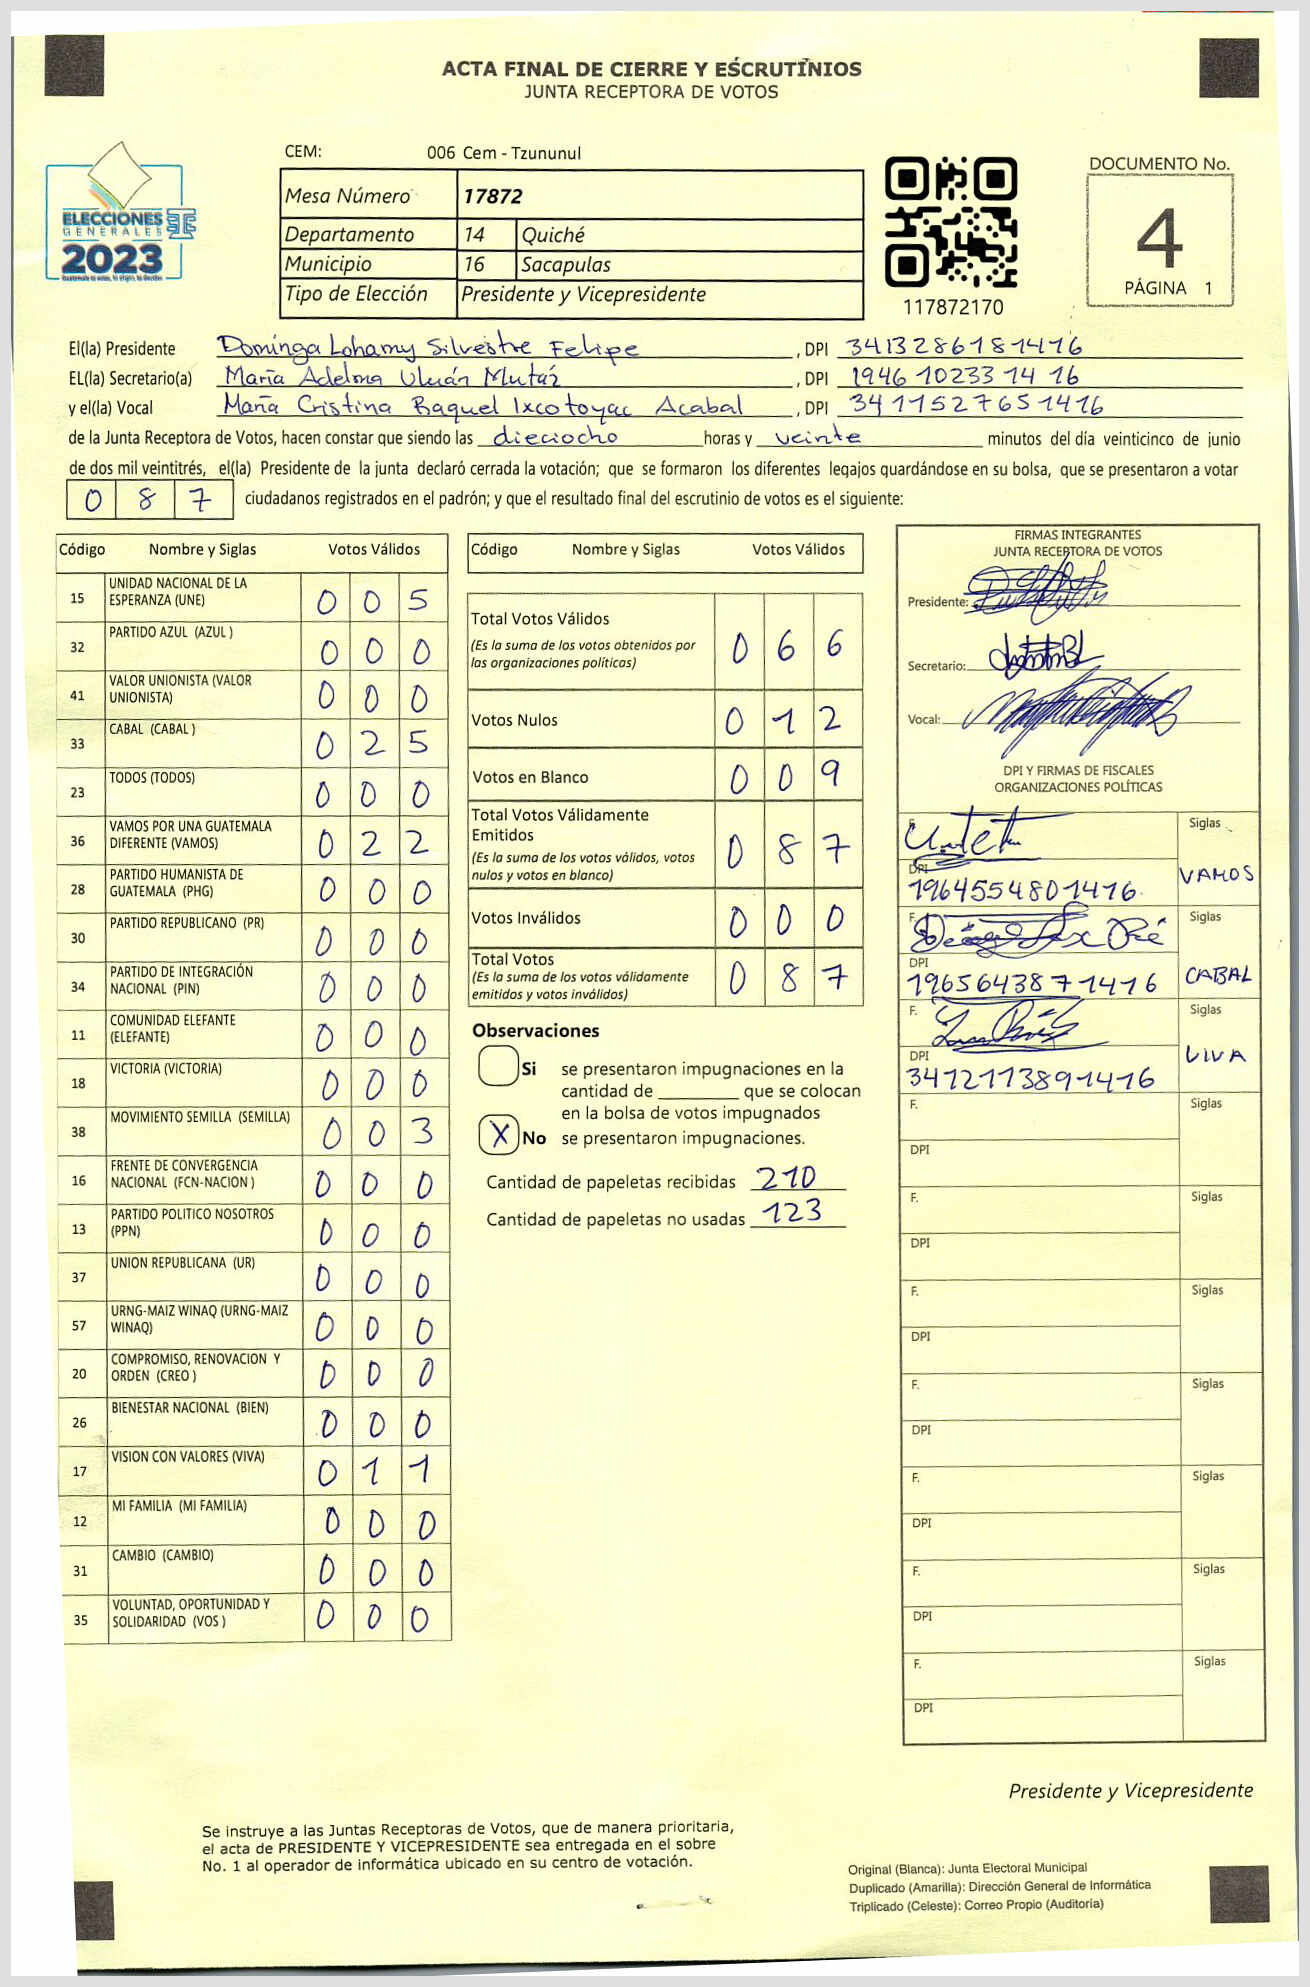 ACTA FINAL DE CIERRE Y ESCRUTINIOS
JUNTA RECEPTORA DE VOTOS
CEM: 006 Cem - Tzununul
ELECCIONES
GENERALES
2023
Mesa Número 17872
Departamento 14 Quiché
Municipio 16 Sacapulas
Tipo de Elección Presidente y Vicepresidente
117872170
DOCUMENTO No.
4
PÁGINA 1
El(la) Presidente Dominga Lohamy Silvestre Felipe, DPI 3413286181416
EL(la) Secretario(a) María Adelma Mutaz, DPI 1946 10233 14 16
y el(la) Vocal María Cristina Raquel Ixcotoyac Acabal, DPI 3411527651416
de la Junta Receptora de Votos, hacen constar que siendo las dieciocho horas y veinte minutos del día veinticinco de junio
de dos mil veintitrés, el(la) Presidente de la junta declaró cerrada la votación; que se formaron los diferentes legajos guardándose en su bolsa, que se presentaron a votar
0 8 7 ciudadanos registrados en el padrón; y que el resultado final del escrutinio de votos es el siguiente:
Código Nombre y Siglas Votos Válidos
15 UNIDAD NACIONAL DE LA
ESPERANZA (UNE) 0 0 5
32 PARTIDO AZUL (AZUL ) 0 0 0
41 VALOR UNIONISTA (VALOR
UNIONISTA) 0 0 0
33 CABAL (CABAL ) 0 2 5
23 TODOS (TODOS) 0 0 0
36 VAMOS POR UNA GUATEMALA
DIFERENTE (VAMOS) 0 2 2
28 PARTIDO HUMANISTA DE
GUATEMALA (PHG) 0 0 0
30 PARTIDO REPUBLICANO (PR) 0 0 0
34 PARTIDO DE INTEGRACIÓN
NACIONAL (PIN) 0 0 0
11 COMUNIDAD ELEFANTE
(ELEFANTE) 0 0 0
18 VICTORIA (VICTORIA) 0 0 0
38 MOVIMIENTO SEMILLA (SEMILLA) 0 0 3
16 FRENTE DE CONVERGENCIA
NACIONAL (FCN-NACION ) 0 0 0
13 PARTIDO POLITICO NOSOTROS
(PPN) 0 0 0
37 UNION REPUBLICANA (UR) 0 0 0
57 URNG-MAIZ WINAQ (URNG-MAIZ
WINAQ) 0 0 0
20 COMPROMISO, RENOVACION Y
ORDEN (CREO ) 0 0 0
26 BIENESTAR NACIONAL (BIEN) 0 0 0
17 VISION CON VALORES (VIVA) 0 1 1
12 MI FAMILIA (MI FAMILIA) 0 0 0
31 CAMBIO (CAMBIO) 0 0 0
35 VOLUNTAD, OPORTUNIDAD Y
SOLIDARIDAD (VOS ) 0 0 0
Código Nombre y Siglas Votos Válidos
Total Votos Válidos
(Es la suma de los votos obtenidos por
las organizaciones políticas) 0 6 6
Votos Nulos 0 1 2
Votos en Blanco 0 0 9
Total Votos Válidamente
Emitidos
(Es la suma de los votos válidos, votos
nulos y votos en blanco) 0 8 7
Votos Inválidos 0 0 0
Total Votos
(Es la suma de los votos válidamente
emitidos y votos inválidos) 0 8 7
Observaciones
Si se presentaron impugnaciones en la
cantidad de ________ que se colocan
en la bolsa de votos impugnados
X No se presentaron impugnaciones.
Cantidad de papeletas recibidas 210
Cantidad de papeletas no usadas 123
FIRMAS INTEGRANTES
JUNTA RECEPTORA DE VOTOS
Presidente:
Secretario:
Vocal:
DPI Y FIRMAS DE FISCALES
ORGANIZACIONES POLÍTICAS
F. Siglas
DPI VAMOS
1964554801416
F. Siglas
DPI
1965643871416 CABAL
F. Siglas
DPI VIVA
3412113891416
F. Siglas
DPI
F. Siglas
DPI
F. Siglas
DPI
F. Siglas
DPI
F. Siglas
DPI
F. Siglas
DPI
F. Siglas
DPI
Presidente y Vicepresidente
Se instruye a las Juntas Receptoras de Votos, que de manera prioritaria,
el acta de PRESIDENTE Y VICEPRESIDENTE sea entregada en el sobre
No. 1 al operador de informática ubicado en su centro de votación.
Original (Blanca): Junta Electoral Municipal
Duplicado (Amarilla): Dirección General de Informática
Triplicado (Celeste): Correo Propio (Auditoría)